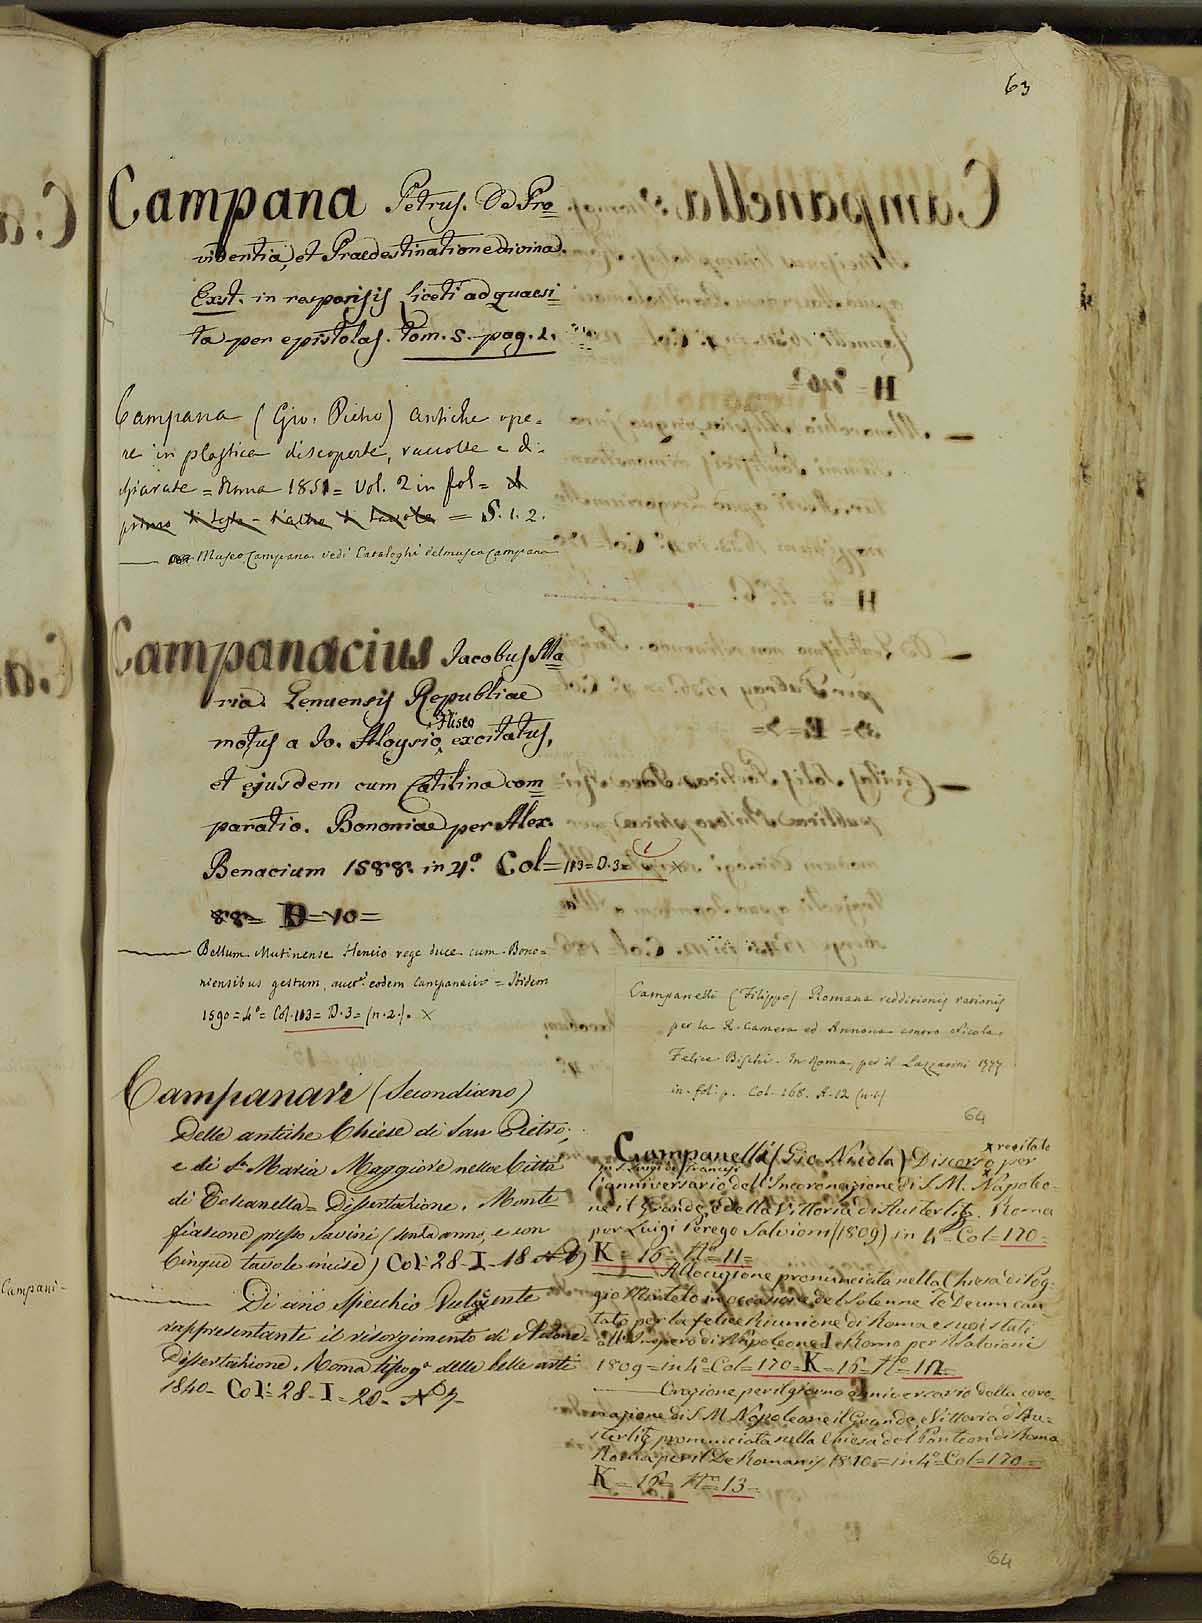 63
Campana Petrus. De Pro=
videntia, et Praedestinatione divina.
Exst. in responsis Liceti ad quaesi=
ta per epistolas. tom. S. pag. 1.
Campana (Gio. Pietro) Antiche ope=
re in plastica discoperte, raccolte e di=
chiarate = Roma 1851 = Vol. 2 in fol =
primo di testo - l'altro di tavole = S. 1. 2.
Museo Campana vedi Cataloghi del museo Campana
Campanacius Jacobus Ma=
ria. Genuensis Republicae
motus a Jo. Aloysio Flisco excitatus,
et ejusdem cum Catilina com=
paratio. Bononiae per Alex.
Benacium 1588. in 4.º Col = 113 = D. 3 = 1
88 = D = 10 =
Bellum Mutinense Hencio rege duce cum Bono=
niensibus gestum, auct.e eodem Campanacio = Ibidem
1590 = 4.º = Col. 113 = D. 3 = (n. 2.). X
Campanari (Secondiano)
Delle antiche Chiese di San Pietro,
e di S.ª Maria Maggiore nella Città
di Toscanella = Dissertazione. Monte
fiascone presso Sartini (senza anno, e con
Cinque tavole incise) Col: 28 - I - 18
Di uno specchio Vulcente
rappresentante il risorgimento di Adone =
Dissertazione. Roma tipog.ª delle belle arti
1840 - Col: 28 - I - 20 - Nº 7 -
Campani -
Campanelli (Filippo) Romana redditionis rationis
per la R. Camera ed Annona contro Nicola,
Felice Bischi. In Roma, per il Lazzarini 1777
in fol. p. Col. 168. A. 12 (n. 6)
64
Campanelli (Gio Nicola) Discorso recitato
in S. Luigi de' Francesi per
l'anniversario dell'Incoronazione di S. M. Napoleo=
ne il Grande e della Vittoria di Austerlitz. Roma
per Luigi Perego Salvioni (1809) in 4º = Col = 170 =
K = 16 = Nº = 11 =
Allocuzione pronunciata nella Chiesa di Pog=
gio Mirteto in occasione del Solenne Te Deum can
tato per la felice Riunione di Roma e suoi stati
all'Impero di Napoleone I = Roma per il Salvioni
1809 = in 4º = Col = 170 = K = 16 = Nº = 12 =
Orazione per il giorno anniversario della coro=
nazione di S. M. Napoleone il Grande, e Vittoria d'Au=
sterlitz pronunciata nella Chiesa del Panteon di Roma
Roma per il De Romanis 1810 = in 4º = Col = 170 =
K = 16 = Nº = 13 -
64